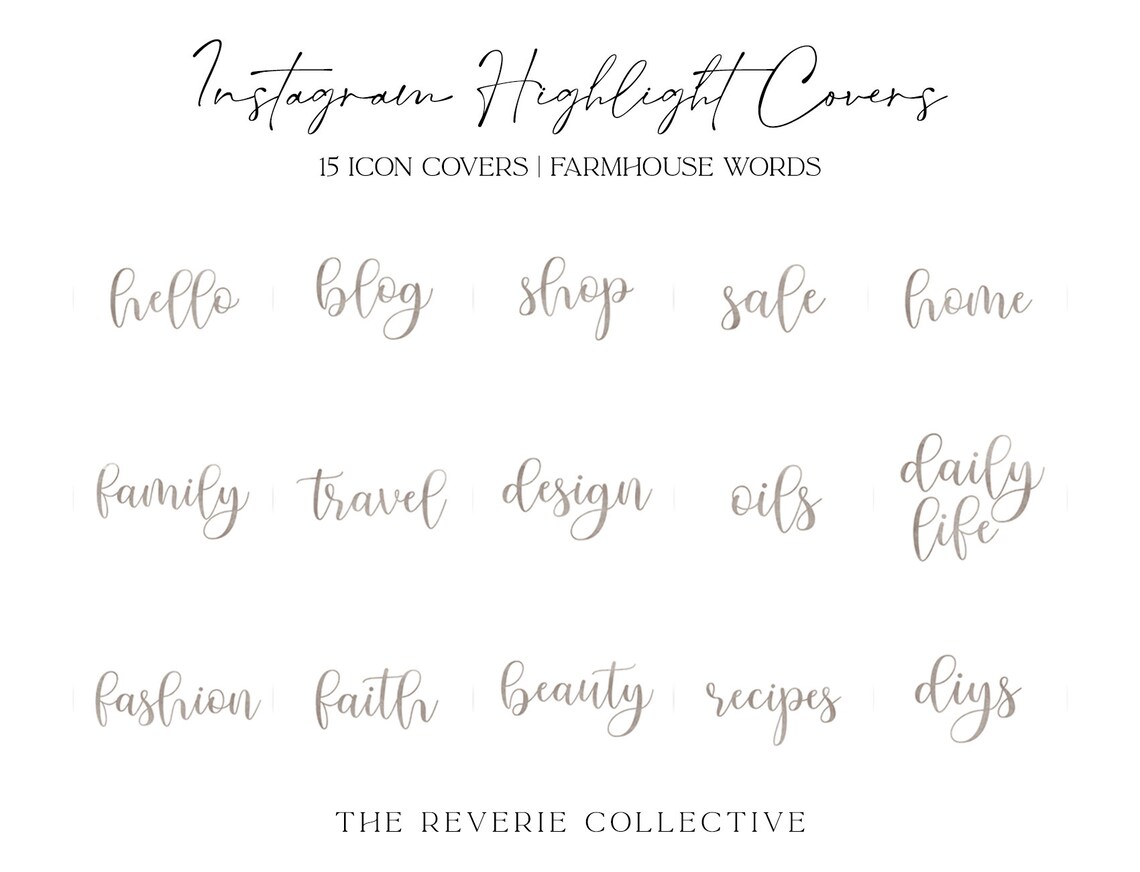 Instagram Highlight Covers
15 ICON COVERS | FARMHOUSE WORDS
hello blog shop sale home
family travel design oils daily life
fashion faith beauty recipes diys
THE REVERIE COLLECTIVE